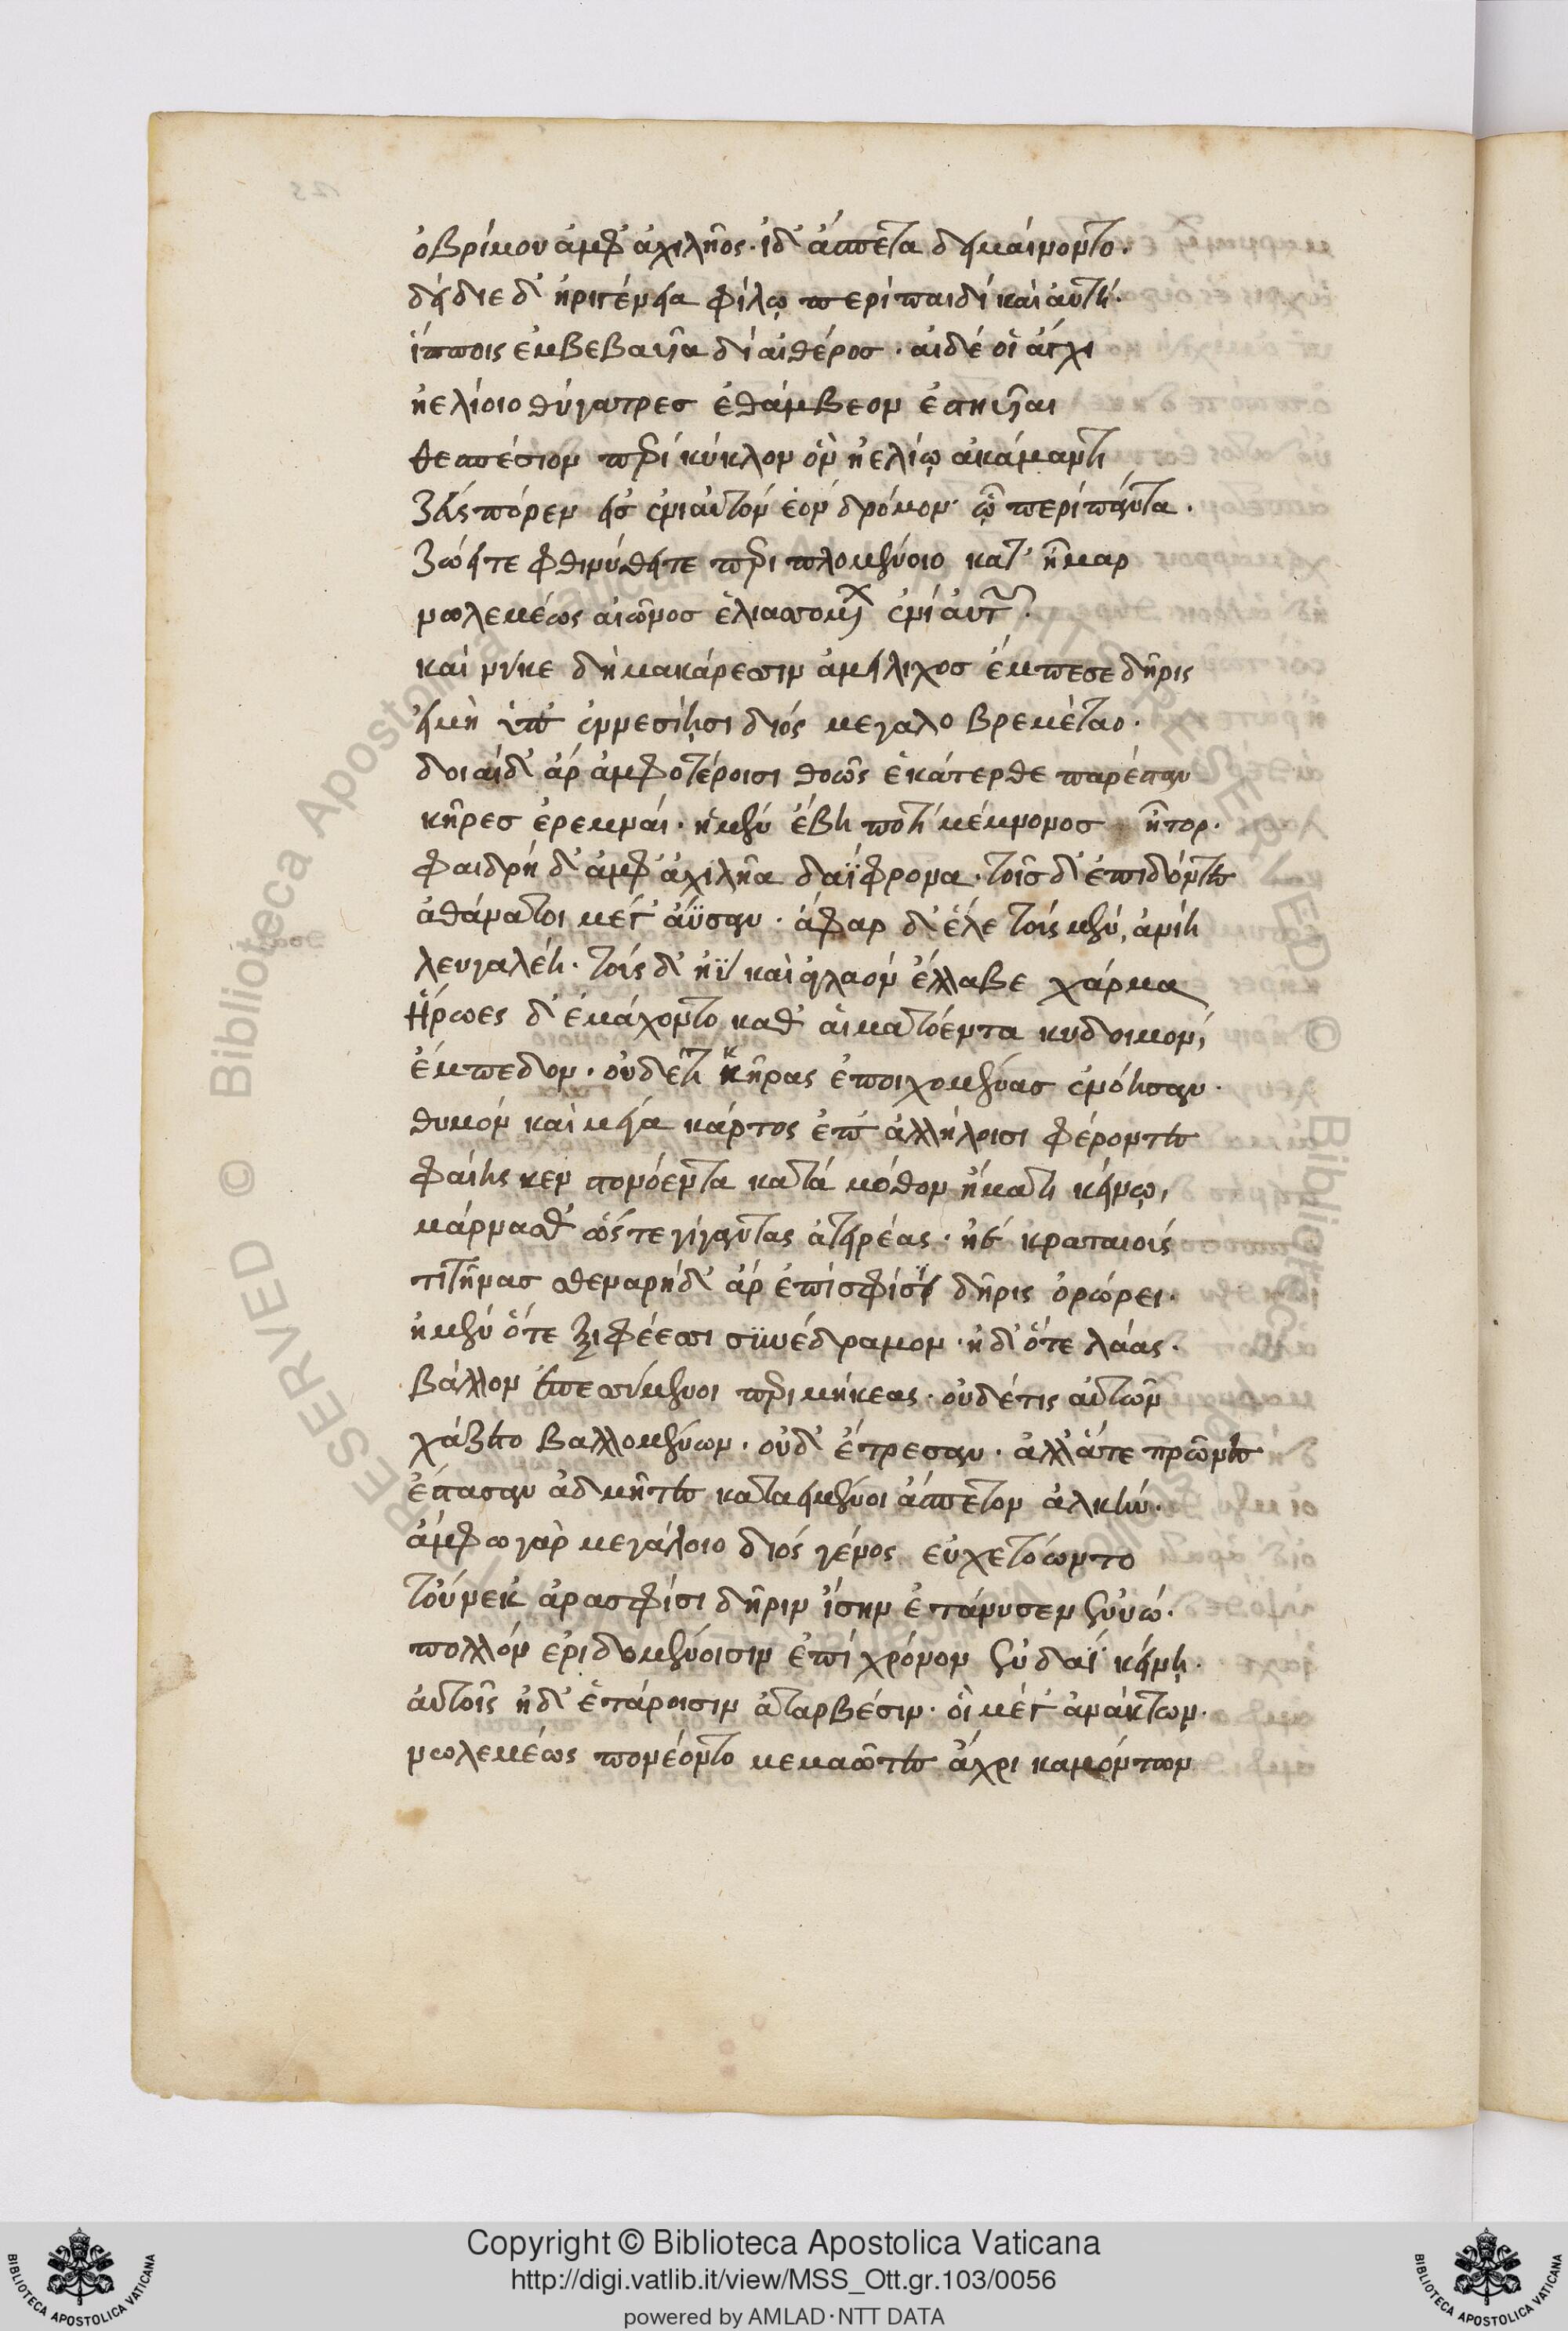 ὀβρίμου ἀμφ' ἀχιλῆος. ἰδ' ἄσπετα δειμαίνοντο.
δείδιε δ' ἠριγένεια φίλῳ περὶ παιδὶ καὶ αὐτή.
ἵπποις ἐμβεβαυῖα δι' αἰθέρος. αἱ δέ οἱ ἄγχι
ἠελίοιο θύγατρες ἐθάμβεον ἑστηυῖαι
θεσπέσιον περὶ κύκλον ὃν ἠελίῳ ἀκάμαντι
ζεὺς πόρεν εἰς ἐνιαυτὸν ἑὸν δρόμον. ᾧ περὶ πάντα.
ζώει τε φθινύθει τε περιπλομένοιο κατ' ἦμαρ
νωλεμέως αἰῶνος ἑλισσομένων ἐνιαυτῶν.
καί νύ κε δὴ μακάρεσσιν ἀμείλιχος ἔμπεσε δῆρις
εἰ μὴ ὑπ' ἐννεσίῃσι διὸς μεγαλοβρεμέταο.
δοιαὶ δ' ἄρ ἀμφοτέροισι θοῶς ἑκάτερθε παρέσταν
κῆρες ἐρεμναί. ἡ μὲν ἔβη ποτὶ μέμνονος ἦτορ.
φαιδρὴ δ' ἀμφ' ἀχιλῆα δαΐφρονα. τοῖς δ' ἐπιδόντες
ἀθάνατοι μέγ' ἄϋσαν. ἄφαρ δ' ἕλε τοὺς μὲν, ἀνίη
λευγαλέη. τοὺς δ' ἠῢ καὶ ἀγλαὸν ἔλλαβε χάρμα
Ἥρωες δ' ἐμάχοντο καθ' αἱματόεντα κυδοιμόν,
ἔμπεδον. οὐδέ τι κῆρας ἐποιχομένας ἐνόησαν.
θυμὸν καὶ μέγα κάρτος ἐπ' ἀλλήλοισι φέροντες
φαίης κεν στονόεντα κατὰ μόθον ἤματι κείνῳ,
μάρνασθ' ὥς τε γίγαντας ἀτειρέας. ἠὲ κραταιοὺς
τιτῆνας σθεναρὴ δ' ἄρ ἐπὶ σφίσι δῆρις ὀρώρει.
ἠμὲν ὅτε ξιφέεσσι συνέδραμον. ἠδ' ὅτε λάας.
βάλλον ἐπεσσύμενοι περιμήκεας. οὐδέ τις αὐτῶν
χάζετο βαλλομένων. οὐδ' ἔτρεσαν. ἀλλ' ἅτε πρῶνες
ἕστασαν ἀδμῆτες καταειμένοι ἄσπετον ἀλκήν.
ἄμφω γὰρ μεγάλοιο διὸς γένος εὐχετόωντο
τοὔνεκ' ἄρα σφίσι δῆριν ἴσην ἐτάνυσεν ἐνυώ.
πολλὸν ἐριδομένοισιν ἐπὶ χρόνον ἐν δαῒ κείνῃ.
αὐτοῖς ἠδ' ἑτάροισιν ἀταρβέσιν. οἳ μέγ' ἀνάκτων.
νωλεμέως πονέοντο μεμαῶτες ἄχρι καμόντων
Copyright © Biblioteca Apostolica Vaticana
http://digi.vatlib.it/view/MSS_Ott.gr.103/0056
powered by AMLAD·NTT DATA